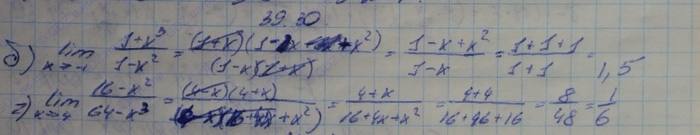 39.30.
б) lim x→-1 (1+x³)/(1-x²) = (1+x)(1-x+x²)/(1-x)(1+x) = (1-x+x²)/(1-x) = (1+1+1)/(1+1) = 1,5
г) lim x→4 (16-x²)/(64-x³) = (4-x)(4+x)/(4-x)(16+4x+x²) = (4+x)/(16+4x+x²) = (4+4)/(16+16+16) = 8/48 = 1/6